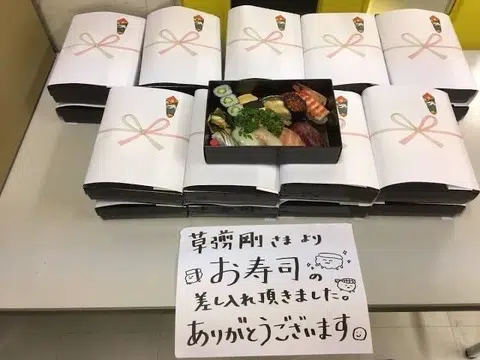 草彅剛さまより
お寿司の
差し入れ頂きました。
ありがとうございます